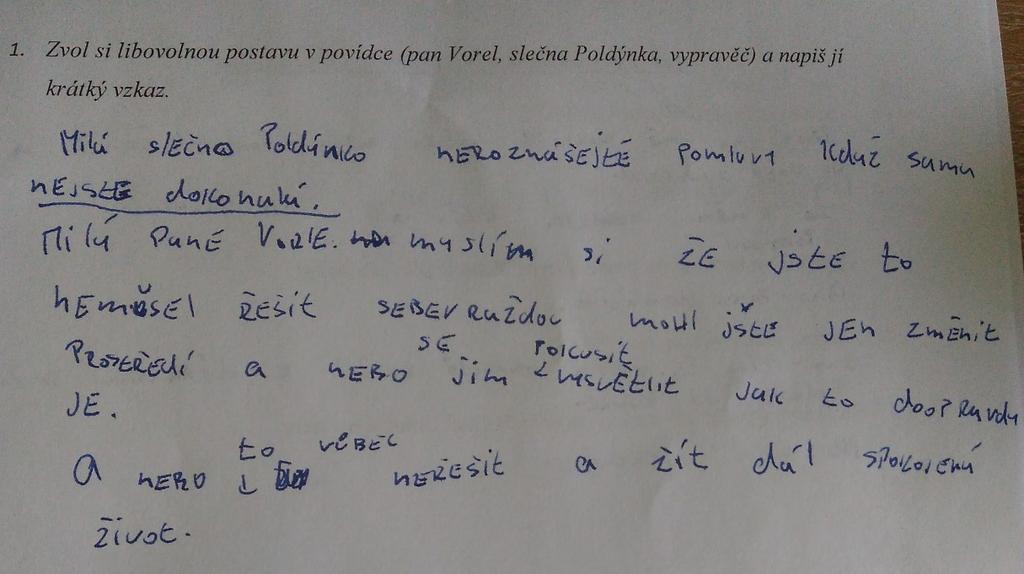 1. Zvol si libovolnou postavu v povídce (pan Vorel, slečna Poldýnka, vypravěč) a napiš jí
krátký vzkaz.
Milá slečno Poldýnko neroznášejtě pomluvy když sama
nejste dokonalá.
Milý pane Vorle. myslím si že jste to
nemusel řešit seberuždou mohl jste jen změnit
prostředí a nebo se jim pokusit vysvětlit jak to doopravdy
je.
A nebo to vůbec neřešit a žít dál spokojený
život.